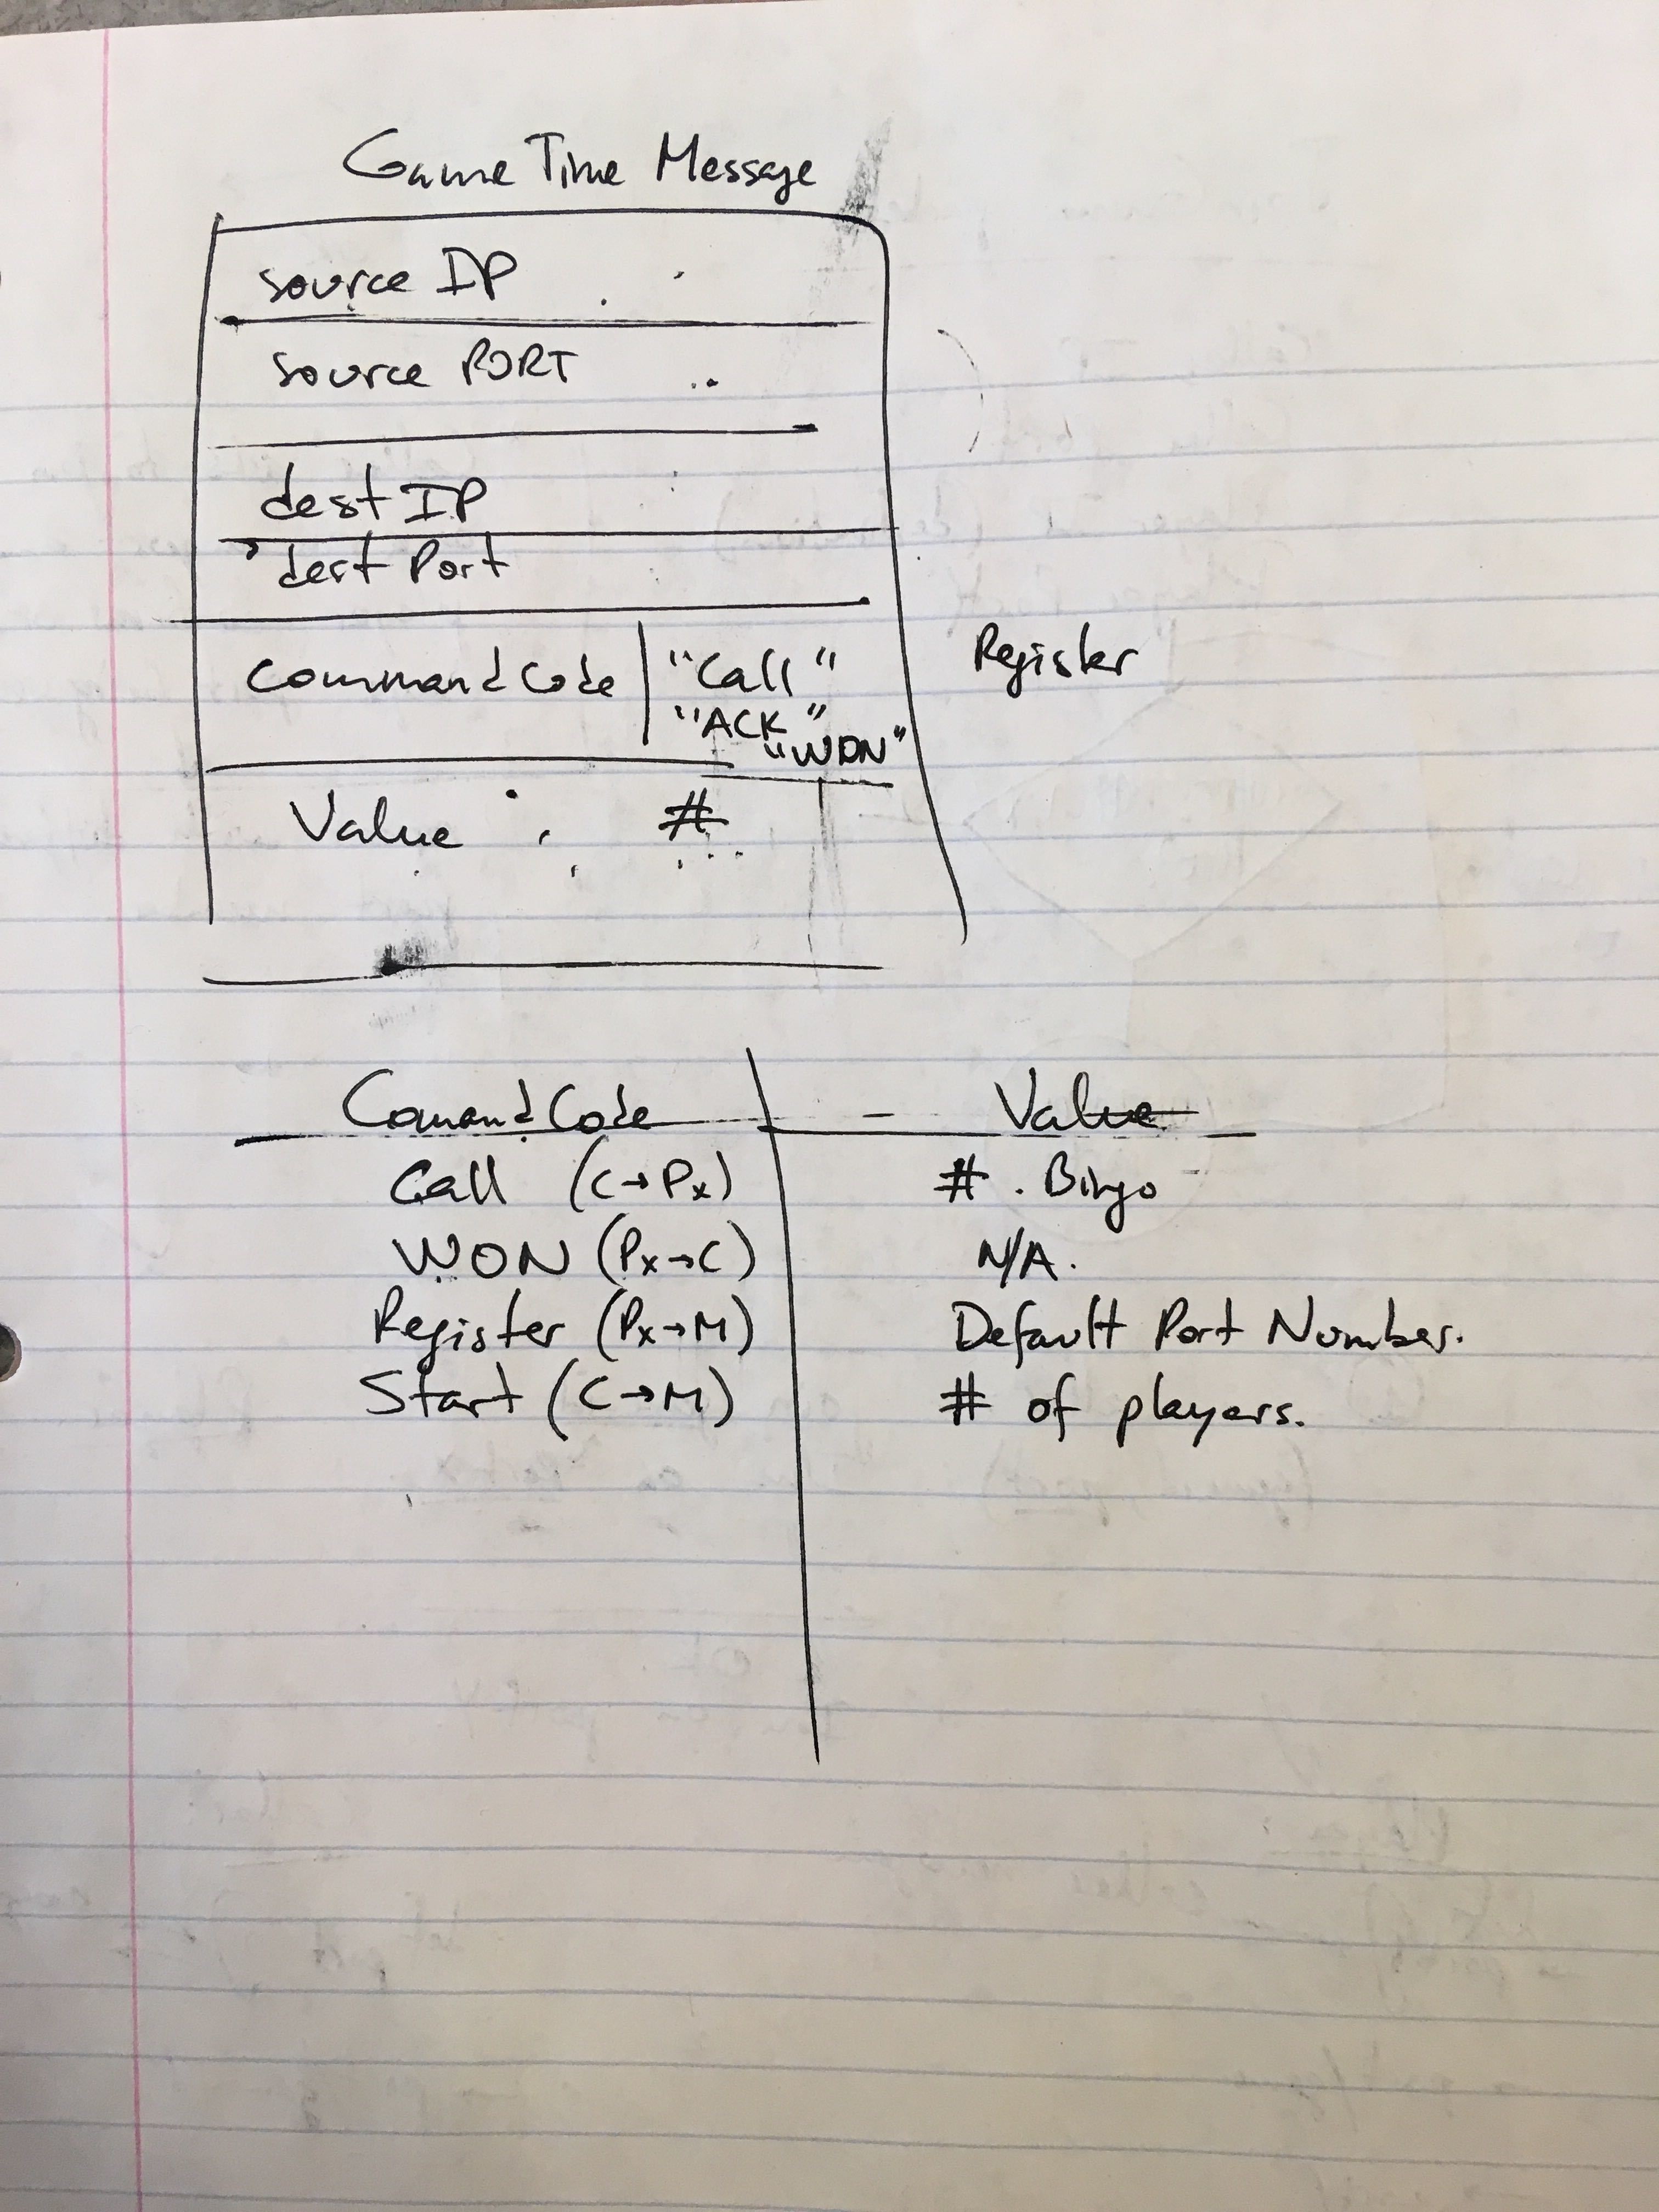 Game Time Message
source IP
source PORT
dest IP
dest Port
Command Code "Call"
"ACK"
"WON"
Register
Value #
Comand Code Value
Call (C→Px) # . Bingo
WON (Px→C) N/A.
Register (Px→M) Default Port Number.
Start (C→M) # of players.